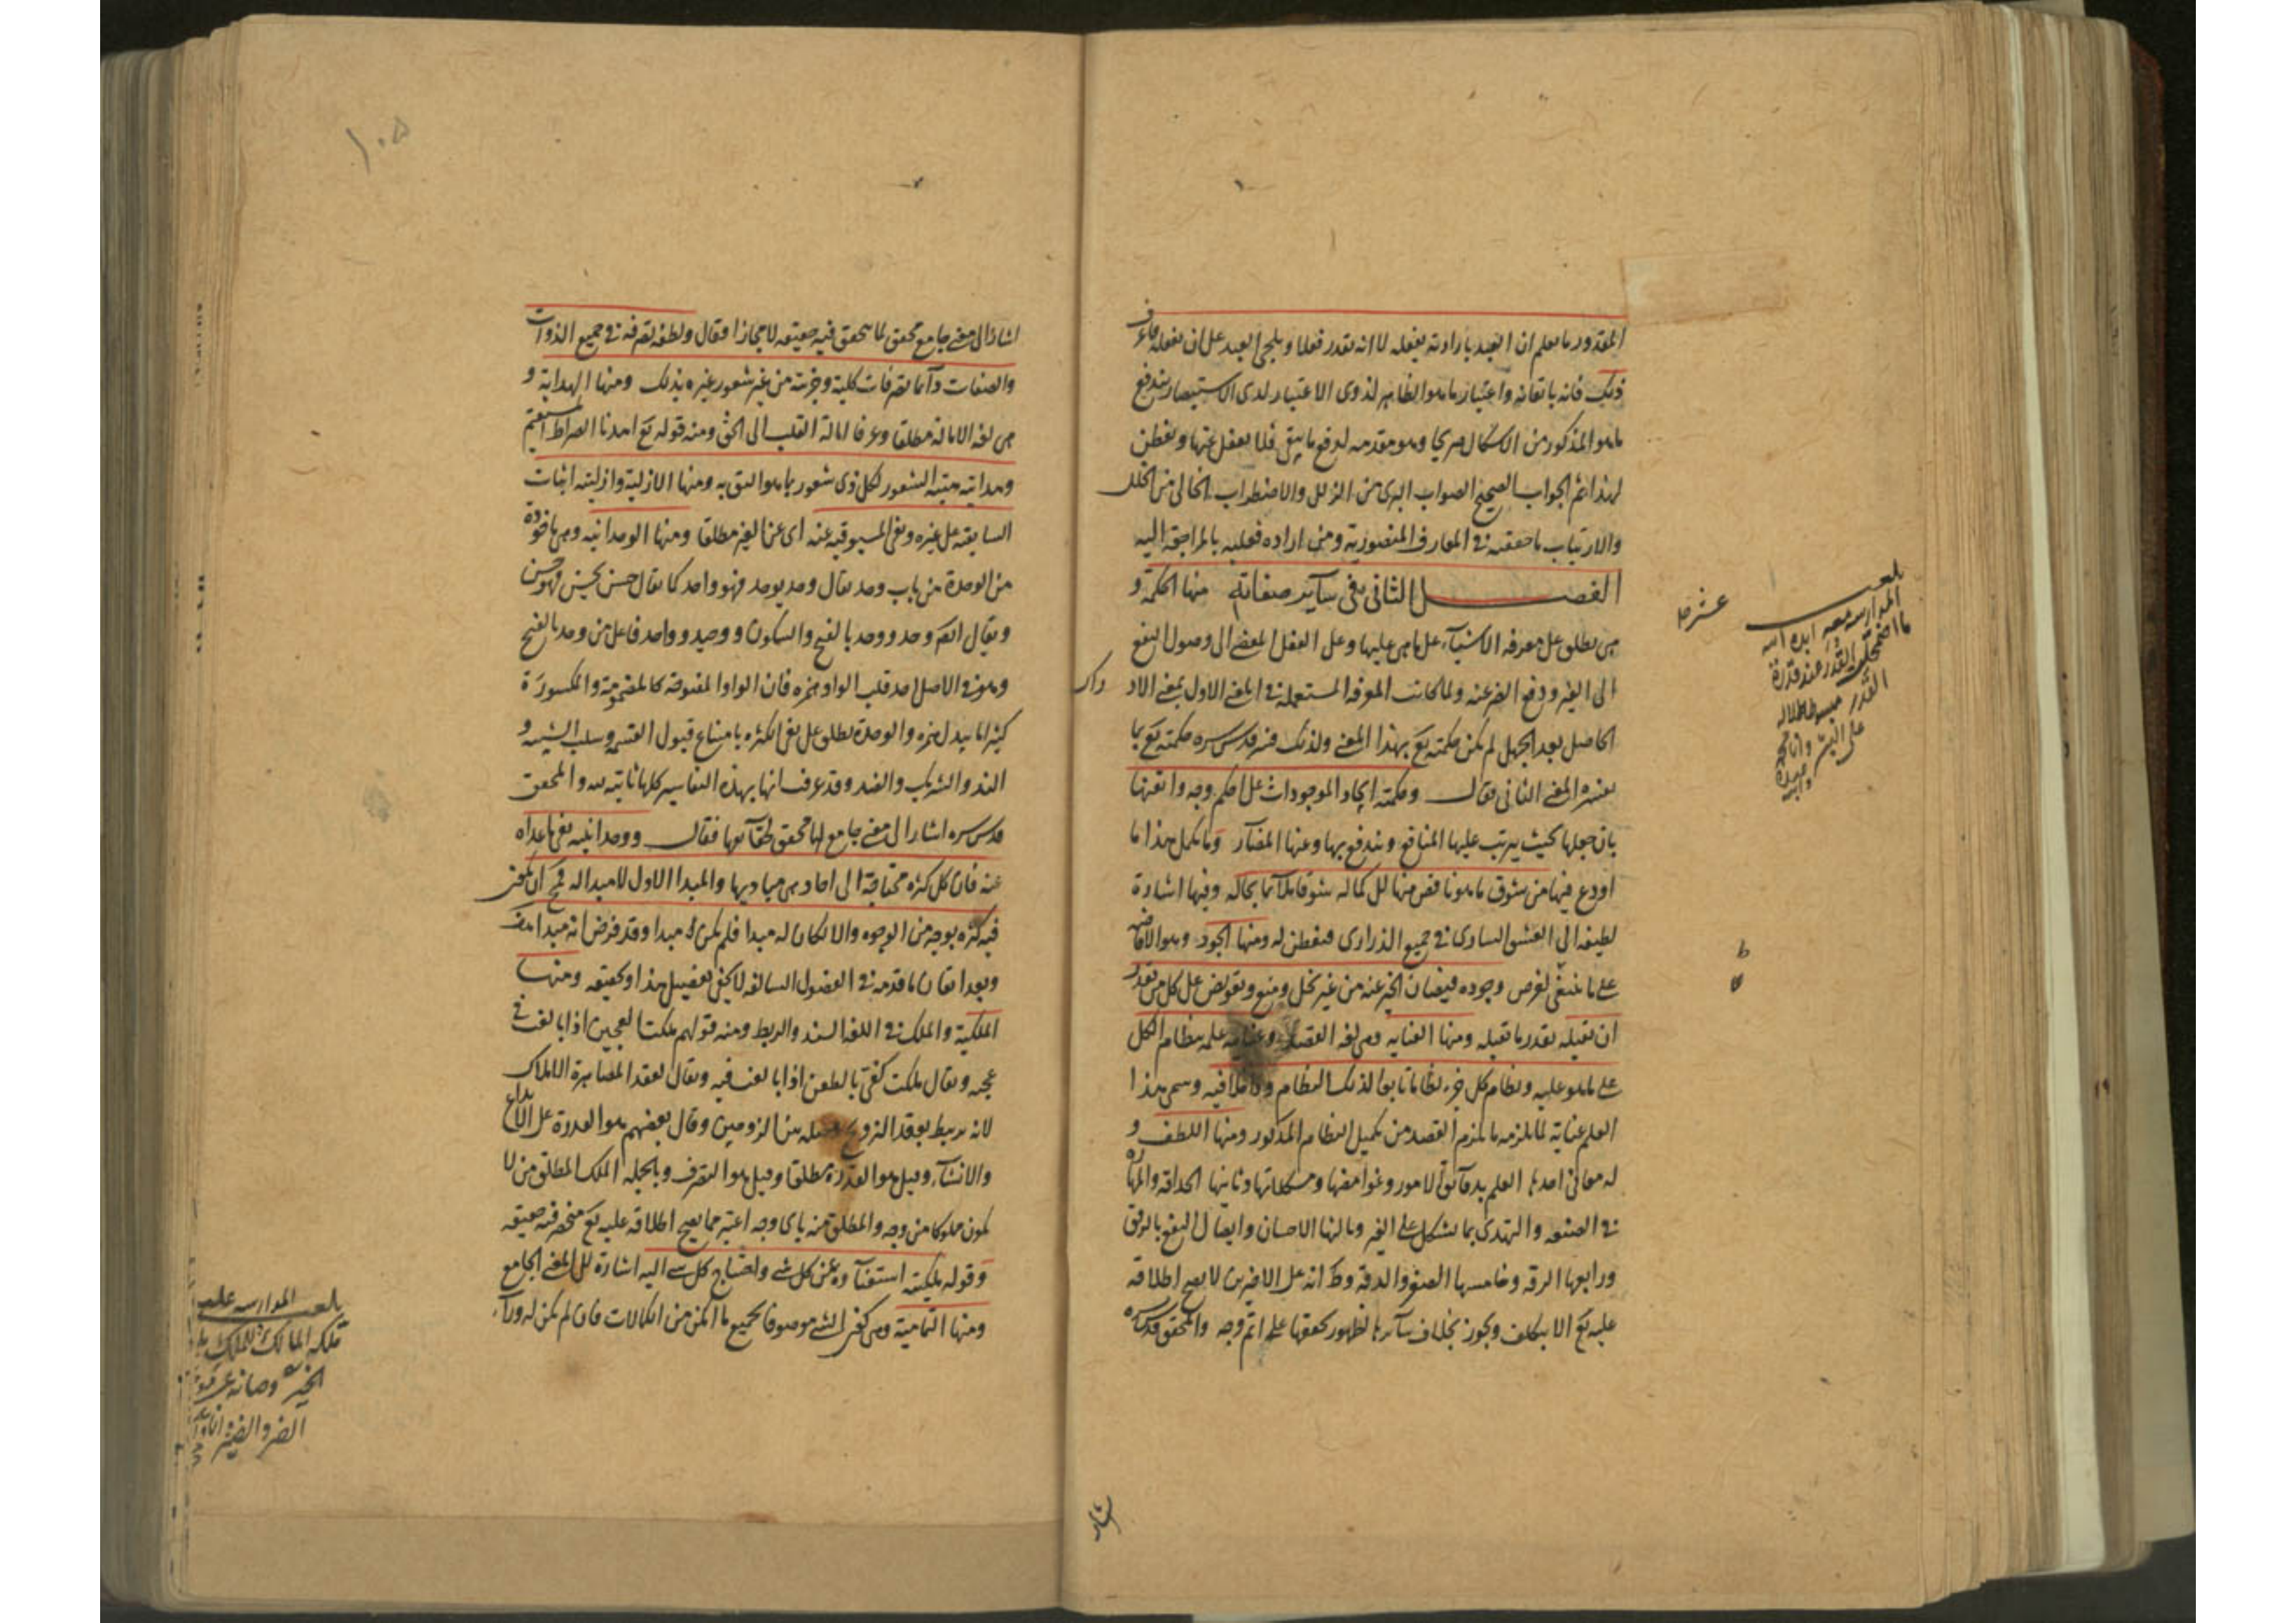 المقدور ما يعلم ان العبد بارادته يفعله لا انه يقدر فعلا ويلجئ العبد على ان يفعله فاعرف
ذلك فانه باتقانه واعتبار ما هو الظاهر لذوى الاعتبار لدى الاستبصار يندفع
ما هو المذكور من الاشكال صريحا وهو مقدمه لدفع ما بقى فلا يغفل عنها وتفطن
لهذا ثم الجواب الصحيح الصواب البرى من الزلل والاضطراب الخالى من الخلل
والارتياب ما حققته فى المعارف المنصورية ومن اراده فعليه بالمراجعة اليه
الفصل الثانى فى سآير صفاته منها الحكمة و
هى يطلق على معرفة الاشيآء على ما هى عليها وعلى الفعل المفضى الى وصول النفع
الى الغير ودفع الضر عنه ولما كانت المعرفة المستعملة فى المعنى الاول بمعنى الادراك
الحاصل بعد الجهل لم يكن حكمته تع بهذا المعنى ولذلك فسر قدس سره حكمته تع بما
يفسره المعنى الثانى فقال وحكمته ايجاد الموجودات على احكم وجه واتقنها
بان جعلها بحيث يترتب عليها المنافع ويندفع بها وعنها المضآر وما يكمل هذا ما
اودع فيها من شوق ما هو ناقص منها الى كماله شوقا ملآئما بحاله وفيها اشارة
لطيفه الى العشق السارى فى جميع الذرارى فتفطن له ومنها الجود وهو الافاضه
على ما ينبغى لغرض وجوده فيضان الخير عنه من غير بخل ومنع وتعويض على كل من يقدر
ان يقبله بقدر ما يقبله ومنها العنايه وهى لغه القصد وعنايته علمه بنظام الكل
على ما هو عليه ونظام كل جزء نظاما تابعا لذلك النظام وداخلا فيه وسمى هذا
العلم عناية لما يلزمه ما يلزم القصد من تكميل النظام المذكور ومنها اللطف و
له معانى احدها العلم بدقآئق الامور وغوامضها ومشكلاتها وثانيها الحذاقة والمهارة
فى الصنعه والتهدى بما يشكل على الغير وثالثها الاحسان وايصال النفع بالرفق
ورابعها الرقه وخامسها الصغر والدقة وظ انه على الاخيرين لا يصح اطلاقه
عليه تع الا بتكلف ويجوز بخلاف سآئرها لظهور تحققها على اتم وجه والمحقق قدس سره
بلغت
المدارسه معه ايده الله
ما اضمحلت القدر عند قدرة
القدر
اشار
اشار الى معنى جامع محقق لما يتحقق فيه حقيقه لا مجازا فقال ولطفه تصرفه فى جميع الذوات
والصفات دآئما تصرفات كلية وجزئية من غير شعور غيره بذلك ومنها الهداية و
هى لغه الامالة مطلقا وعرفا امالة القلب الى الحق ومنه قوله تع اهدنا الصراط المستقيم
وهدايته تنبيه الشعور لكل ذى شعور بما هو اليق به ومنها الازلية وازليته اثبات
السابقة على غيره ونفى المسبوقيه عنه اى عن الغير مطلقا ومنها الوحدانيه وهى ماخوذة
من الوحدة من باب وحد يقال وحد يوحد فهو واحد كما يقال حسن يحسن فهو حسن
ويقال ايض وحد ووحد بالفتح والسكون ووحيد وواحد فاعل من وحد بالفتح
وهو فى الاصل احد قلب الواو همزه فان الواو المفتوحة كالمضمومة والمكسورة
كثيرا ما تبدل همزه والوحدة يطلق على نفى الكثره بامتناع قبول القسمه وسلب الشبيه و
الند والشريك والضد وقد عرفت انها بهذه التفاسير كلها ثابته له والمحقق
قدس سره اشار الى معنى جامع لها محقق لحقآئقها فقال ووحدانيته نفى ما عداه
عنه فان كل كثره محتاجة الى احاد هى مباديها والمبدا الاول لا مبدا له فمحال ان يكون
فيه كثره بوجه من الوجوه والا لكان له مبدا فلم يكن مبدا وقد فرض انه مبدا هف
وبعد اتقان ما قدمه فى الفصول السالفه لا يخفى تفصيل هذا وتحقيقه ومنها
الملكية والملك فى اللغه الشد والربط ومنه قولهم ملكت العجين اذا بالغت فى
عجنه ويقال ملكت كفى بالطعن اذا بالغت فيه ويقال لعقد المصاهرة الاملاك
لانه يربط بعقد التزويج بين الزوجين وقال بعضهم هو القدرة على الابداع
والانشآء وقيل هو القدرة مطلقا وقيل هو التصرف وبالجمله الملك المطلق من لا
يكون مملوكا من وجه والمطلق منه باى وجه اعتبر مما يصح اطلاقه عليه تع منحصر فيه حقيقه
وقوله ملكيته استغنآؤه عن كل شئ واحتياج كل شئ اليه اشارة الى المعنى الجامع
ومنها التمامية وهى كون الشئ موصوفا بجميع ما امكن من الكمالات فان لم يكن له ورآء
بلغت المدارسه
ملكه المالك الملك
الخير وصانه عن
الضر والضير
١٠٥